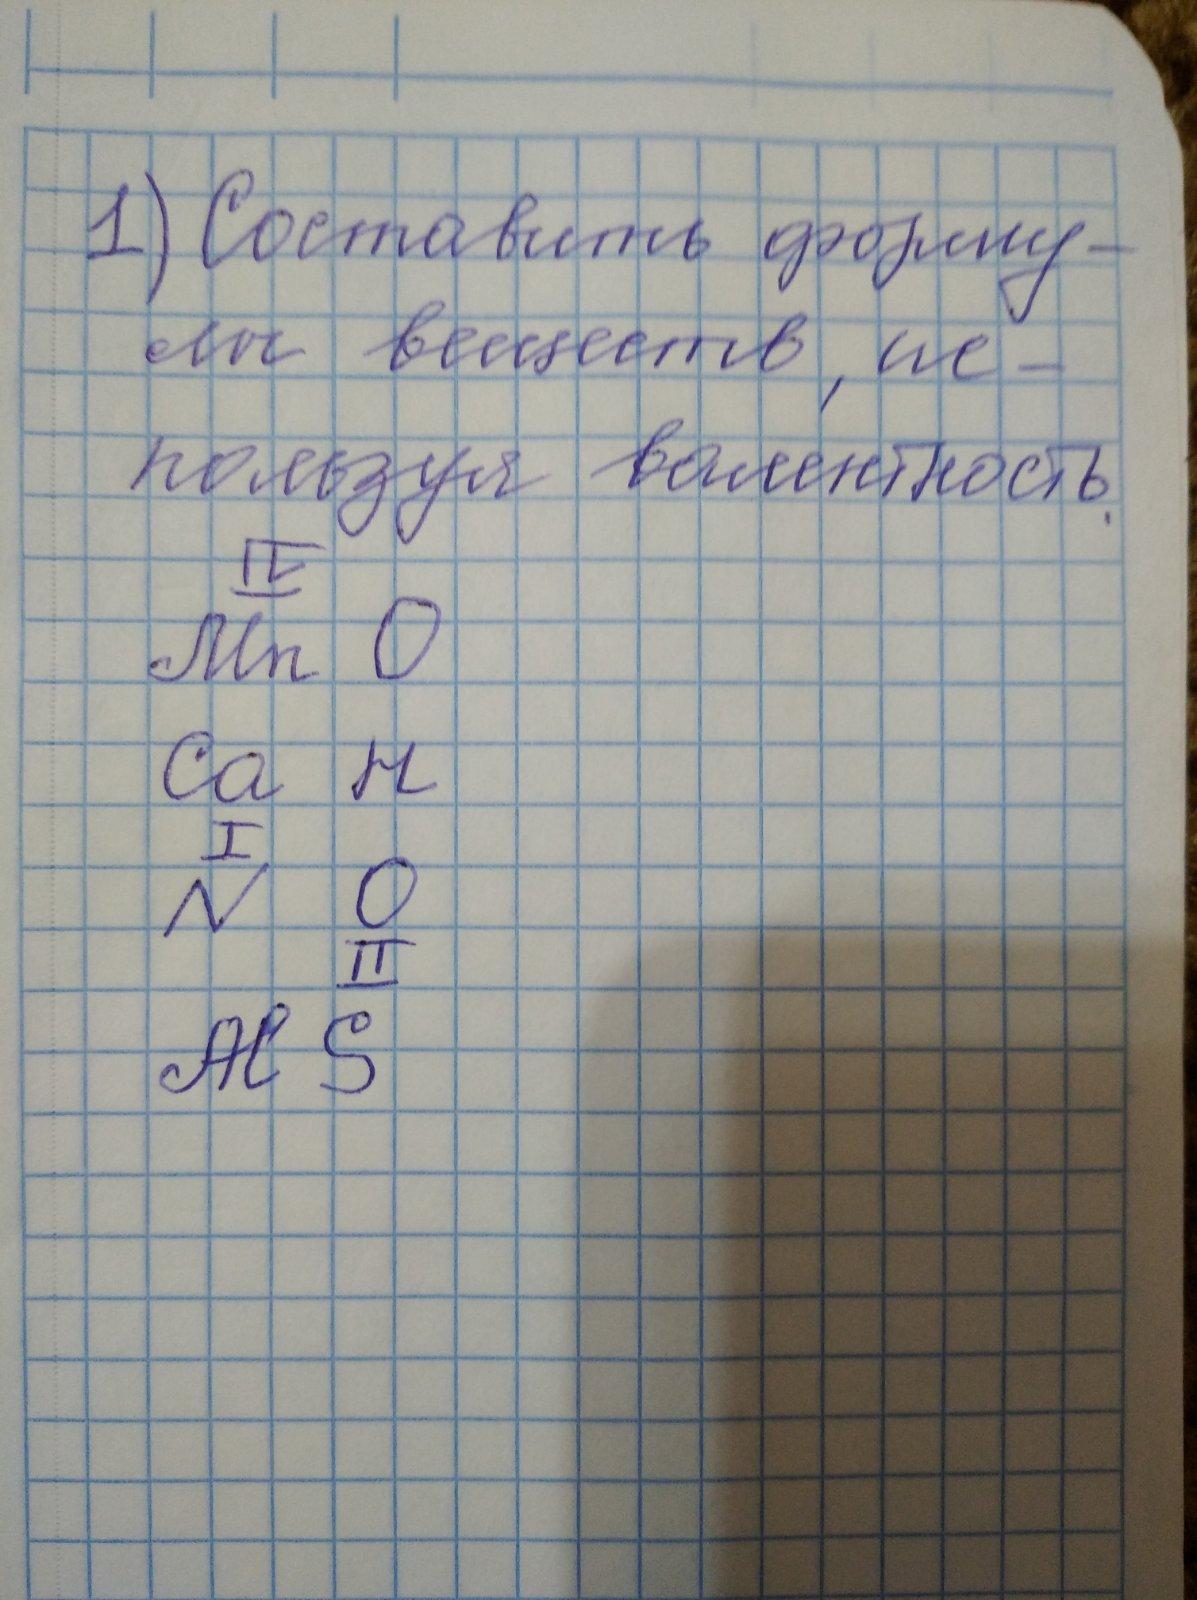 1) Составить форму-
лы веществ, ис-
пользуя валентность.
IV
Mn O
Ca H
I
N O
II
Al S